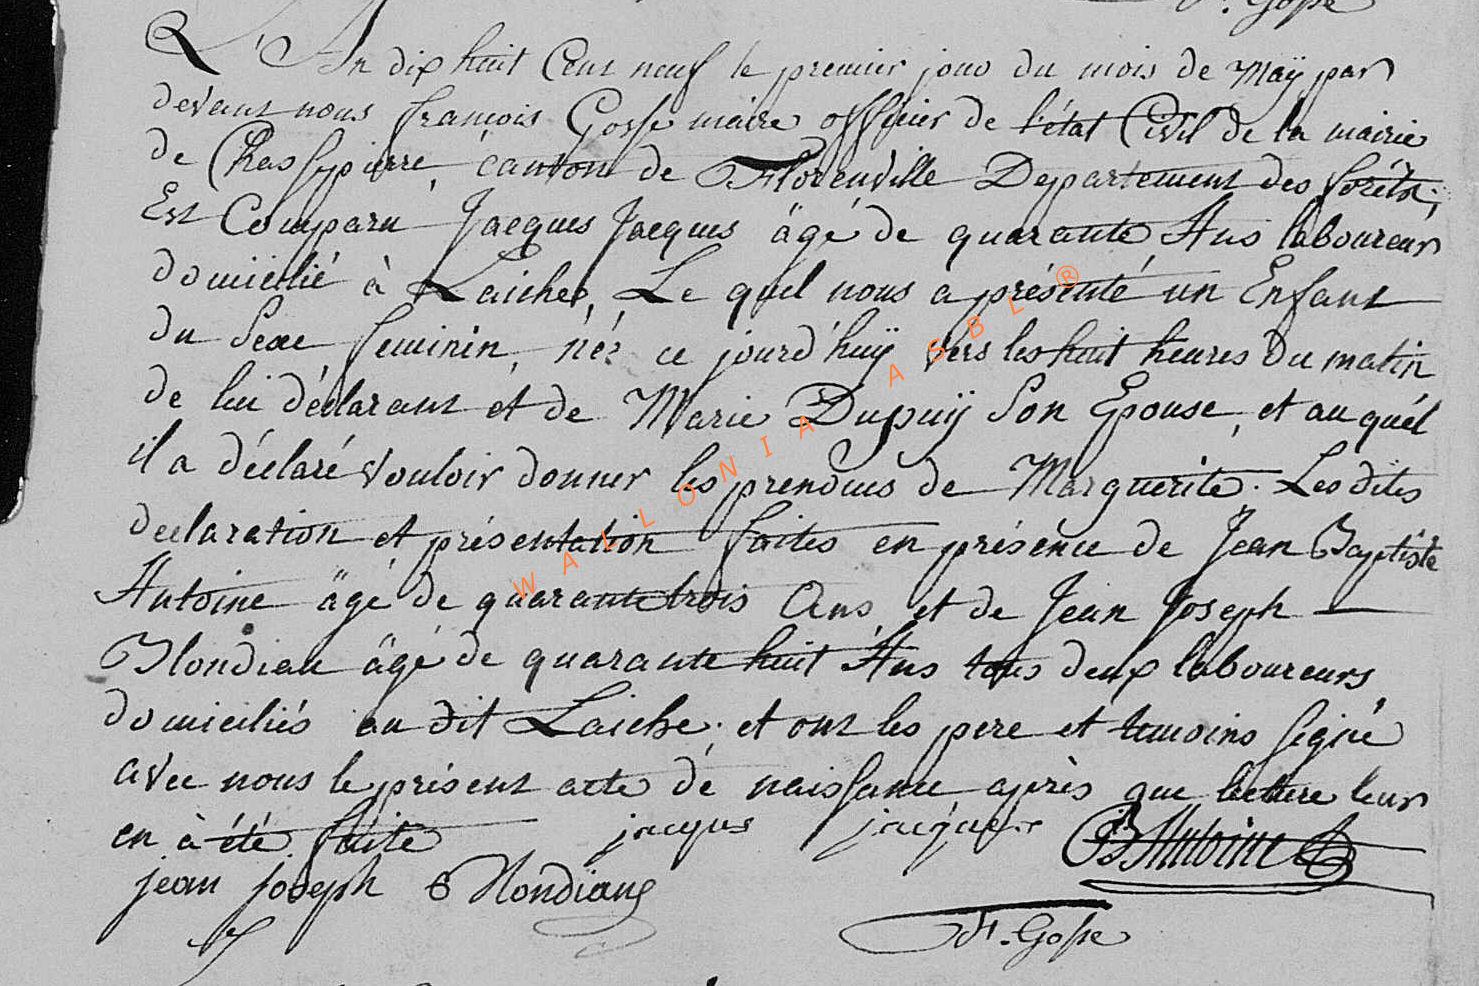 F. Gosse
L'An dix huit Cent neuf le premier jour du mois de Maÿ par
devant nous françois Gosse maire officier de l'état Civil de la mairie
de Chassepierre, canton de Florenville Departement des forêts;
Est Comparu Jacques Jacques âgé de quarante Ans laboureur
domicilié à Laiche, Le quel nous a présenté un Enfant
du Sexe feminin, néz ce jourd'huÿ vers les huit heures du matin
de lui déclarant et de Marie Dupuÿ Son Epouse, et au quél
il a déclaré vouloir donner les prenoms de Marguerite. Les dites
declaration et présentation faites en présence de Jean Baptiste
Antoine âgé de quarante trois Ans, et de Jean Joseph
Blondiau âgé de quarante huit Ans tous deux laboureurs
domiciliés au dit Laiche; et ont les pere et temoins signé
avec nous le présent acte de naissance après que lecture leur
en à été faite jacques jacques JB Antoine
jean joseph Blondiaux
F. Gosse
WALLONIA ASBL ®